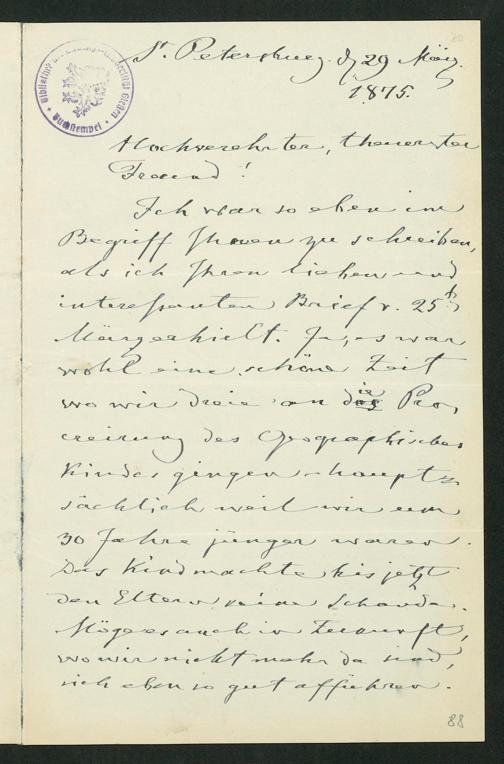 20
St. Petersburg. d. 29 März
1875.
Bibliothek der Universität Giessen
Buchstempel
Hochverehrter, theuerster
Freund!
Ich war so eben im
Begriff Ihnen zu schreiben,
als ich Ihren lieben und
interessanten Brief v. 25t
März erhielt. Ja, es war
wohl eine schöne Zeit
wo wir dreie an die Pro,
creirung des Geographischen
Kindes gingen - haupt=
sächlich weil wir um
30 Jahre jünger waren.
Das Kind machte bis jetzt
den Eltern keine Schande.
Möge es auch in Zukunft,
wo wir nicht mehr da sind,
sich eben so gut aufführen.
88